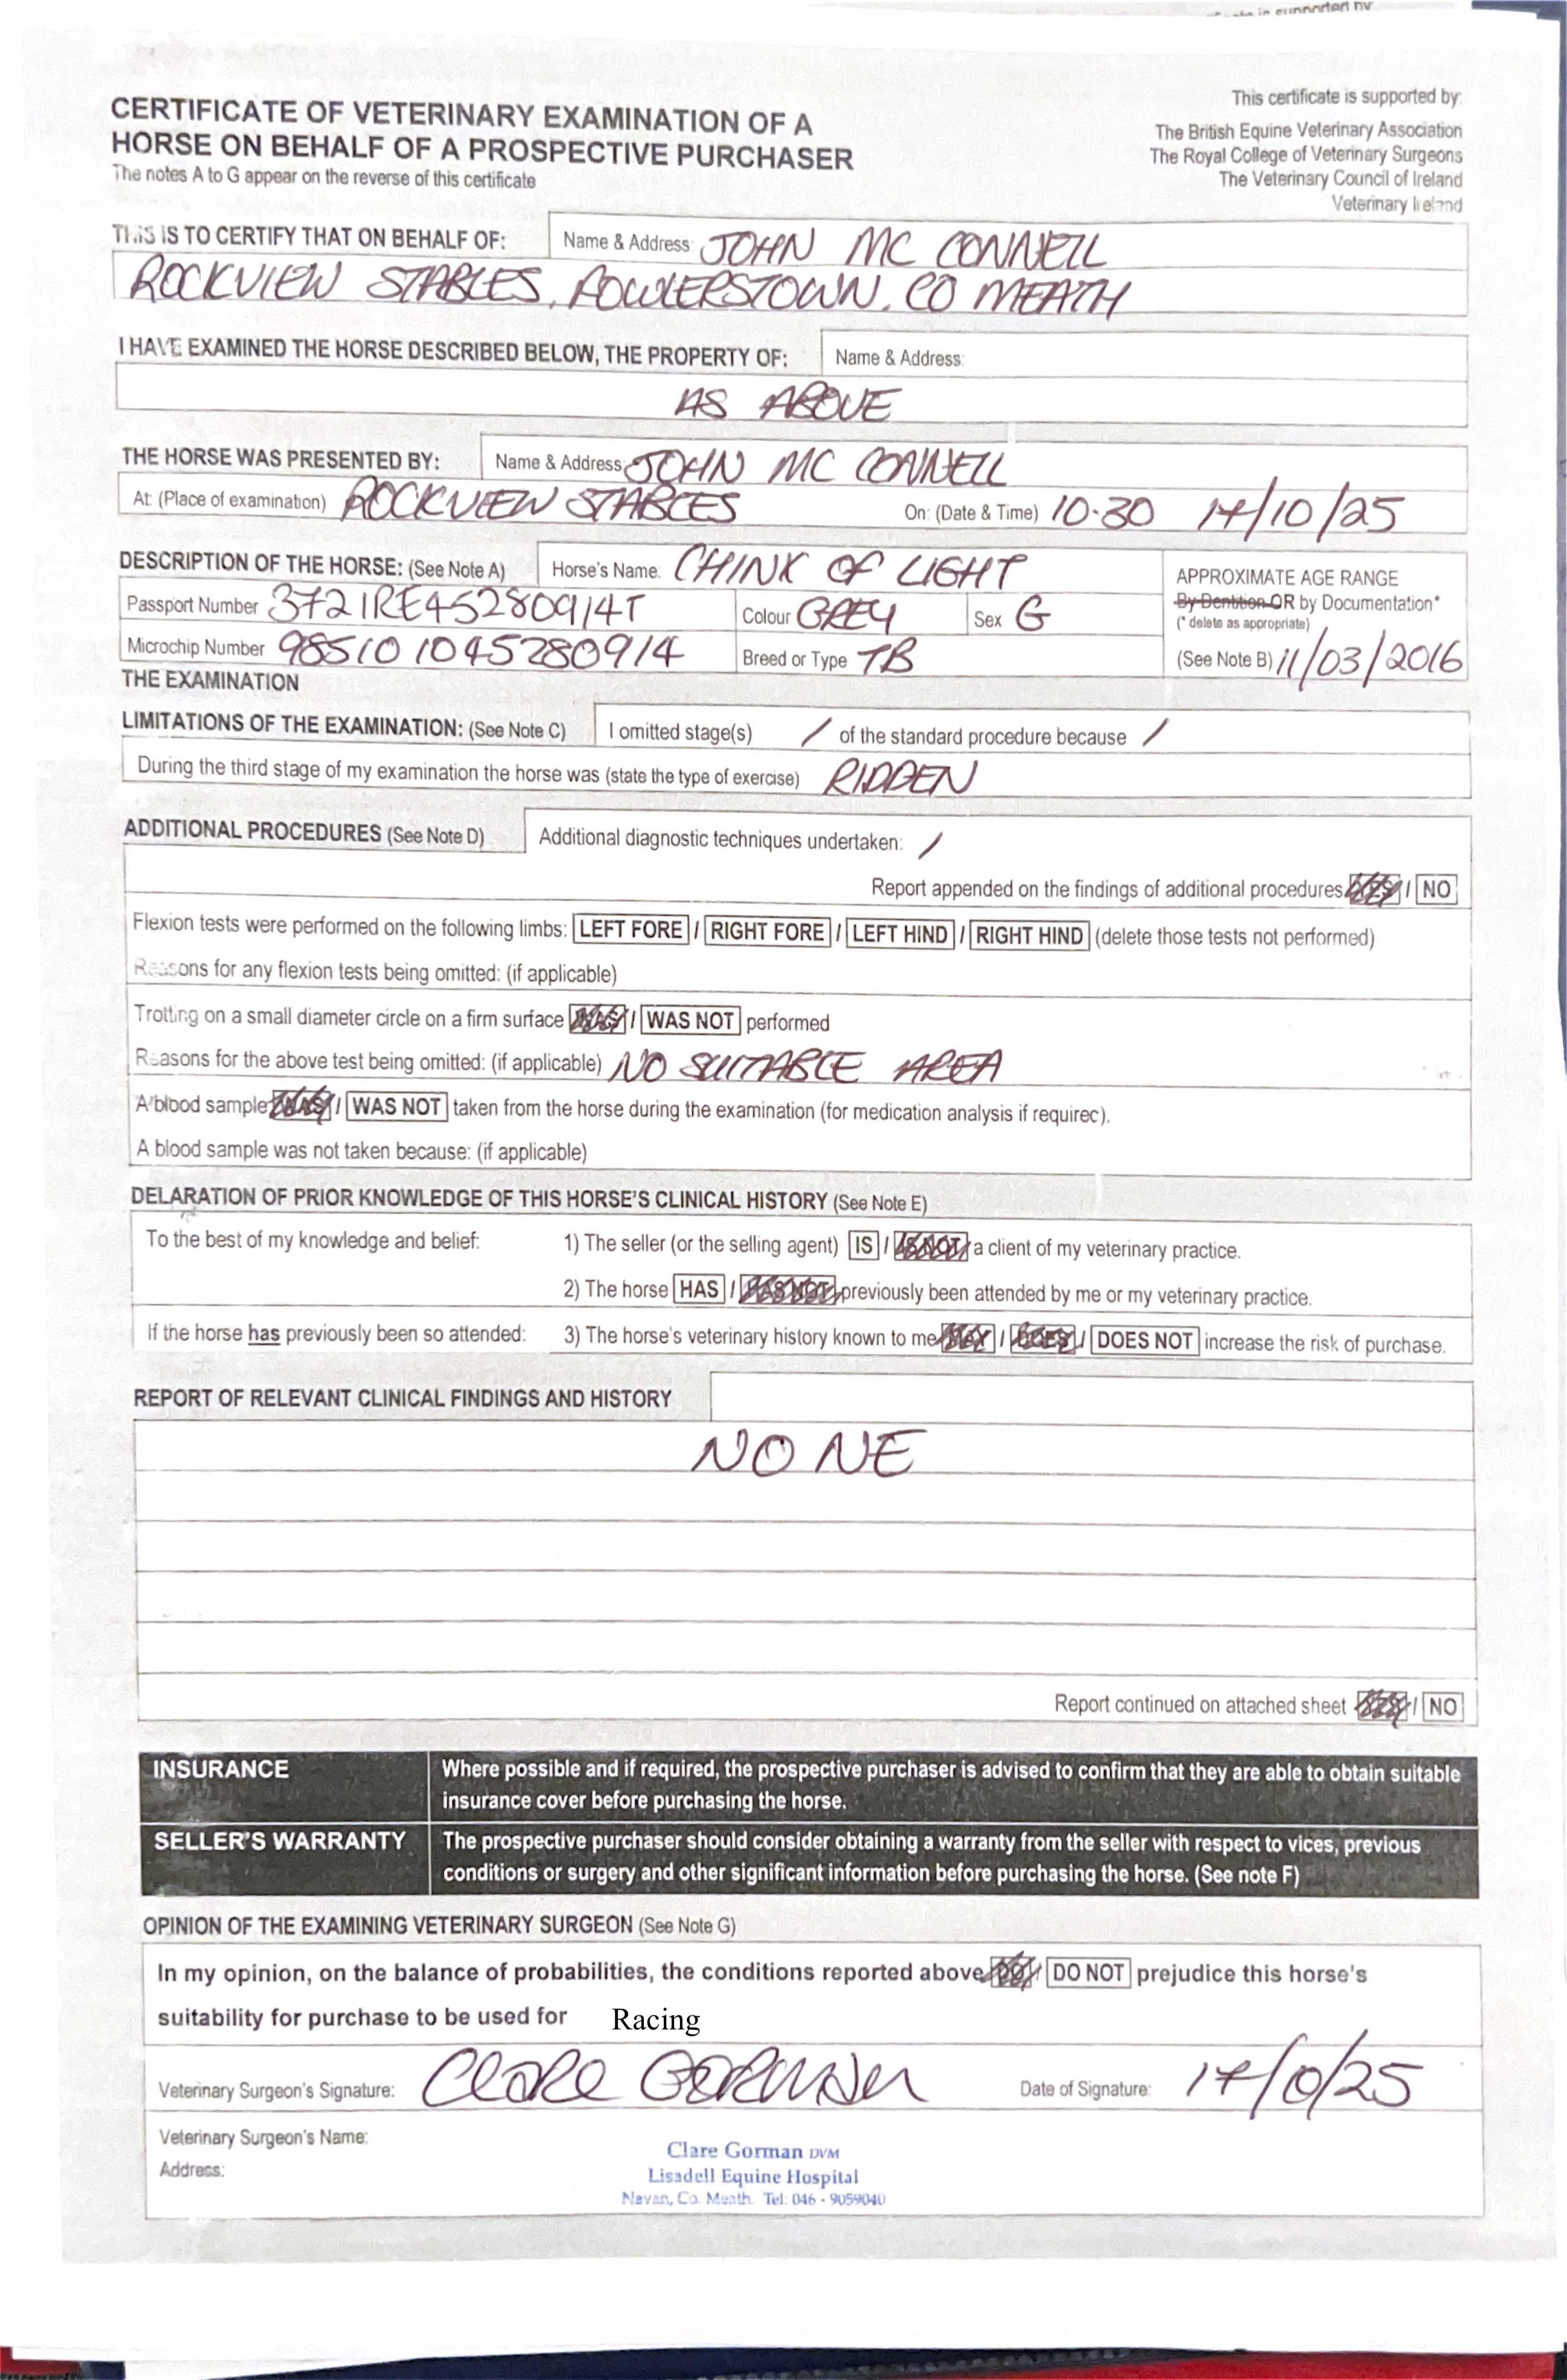 CERTIFICATE OF VETERINARY EXAMINATION OF A
HORSE ON BEHALF OF A PROSPECTIVE PURCHASER
The notes A to G appear on the reverse of this certificate
This certificate is supported by:
The British Equine Veterinary Association
The Royal College of Veterinary Surgeons
The Veterinary Council of Ireland
Veterinary Ireland
THIS IS TO CERTIFY THAT ON BEHALF OF: Name & Address: JOHN MC CONNELL
ROCKVIEW STABLES, FOWLERSTOWN, CO MEATH
I HAVE EXAMINED THE HORSE DESCRIBED BELOW, THE PROPERTY OF: Name & Address:
AS ABOVE
THE HORSE WAS PRESENTED BY: Name & Address: JOHN MC CONNELL
At: (Place of examination) ROCKVIEW STABLES On: (Date & Time) 10.30 17/10/25
DESCRIPTION OF THE HORSE: (See Note A) Horse's Name: CHINK OF LIGHT
Passport Number 372IRE45280914T Colour GREY Sex G
Microchip Number 985101045280914 Breed or Type TB
APPROXIMATE AGE RANGE
By Dentition OR by Documentation*
(* delete as appropriate)
(See Note B) 11/03/2016
THE EXAMINATION
LIMITATIONS OF THE EXAMINATION: (See Note C) I omitted stage(s) / of the standard procedure because /
During the third stage of my examination the horse was (state the type of exercise) RIDDEN
ADDITIONAL PROCEDURES (See Note D) Additional diagnostic techniques undertaken: /
Report appended on the findings of additional procedures YES / NO
Flexion tests were performed on the following limbs: LEFT FORE / RIGHT FORE / LEFT HIND / RIGHT HIND (delete those tests not performed)
Reasons for any flexion tests being omitted: (if applicable)
Trotting on a small diameter circle on a firm surface WAS / WAS NOT performed
Reasons for the above test being omitted: (if applicable) NO SUITABLE AREA
A blood sample WAS / WAS NOT taken from the horse during the examination (for medication analysis if required).
A blood sample was not taken because: (if applicable)
DELARATION OF PRIOR KNOWLEDGE OF THIS HORSE'S CLINICAL HISTORY (See Note E)
To the best of my knowledge and belief: 1) The seller (or the selling agent) IS / IS NOT a client of my veterinary practice.
2) The horse HAS / HAS NOT previously been attended by me or my veterinary practice.
If the horse has previously been so attended: 3) The horse's veterinary history known to me MAY / DOES / DOES NOT increase the risk of purchase.
REPORT OF RELEVANT CLINICAL FINDINGS AND HISTORY
NONE
Report continued on attached sheet YES / NO
INSURANCE Where possible and if required, the prospective purchaser is advised to confirm that they are able to obtain suitable
insurance cover before purchasing the horse.
SELLER'S WARRANTY The prospective purchaser should consider obtaining a warranty from the seller with respect to vices, previous
conditions or surgery and other significant information before purchasing the horse. (See note F)
OPINION OF THE EXAMINING VETERINARY SURGEON (See Note G)
In my opinion, on the balance of probabilities, the conditions reported above DO / DO NOT prejudice this horse's
suitability for purchase to be used for Racing
Veterinary Surgeon's Signature: Clare Gorman Date of Signature: 17/10/25
Veterinary Surgeon's Name:
Address:
Clare Gorman DVM
Lisadell Equine Hospital
Navan, Co. Meath. Tel: 046 - 9059040